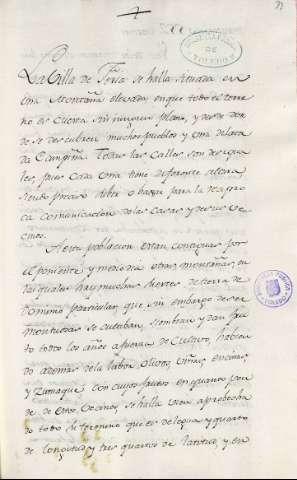 La Villa de Feria se halla situada en
una Montaña elevada, en que todo el terre
no es Cuesta sin ningun plano, y desde don
de se descubren muchos Pueblos y una dilata
da Campiña. Todas las Calles son desigua
les, pues Cada una tiene diferente altura
siendo preciso subir o baxar para la recipro
ca Comunicacion de las Casas y de sus Ve
cinos.
A esta poblacion estan contiguas por
el poniente y mediodia otras montañas, en
las quales hay muchas suertes de tierra de
dominio particular, que sin embargo de ser
montuosas se cultiban, siembran y dan fru
to todos los años a fuerza de Cultivo, habien
do ademas de la labor, olivos, viñas, encinas,
y zumaque con cuyos frutos en quanto pen
de de estos Vecinos, se halla bien aprobecha
do todo su termino que es de legua y quarto
de longitud y tres quartos de latitud, y en